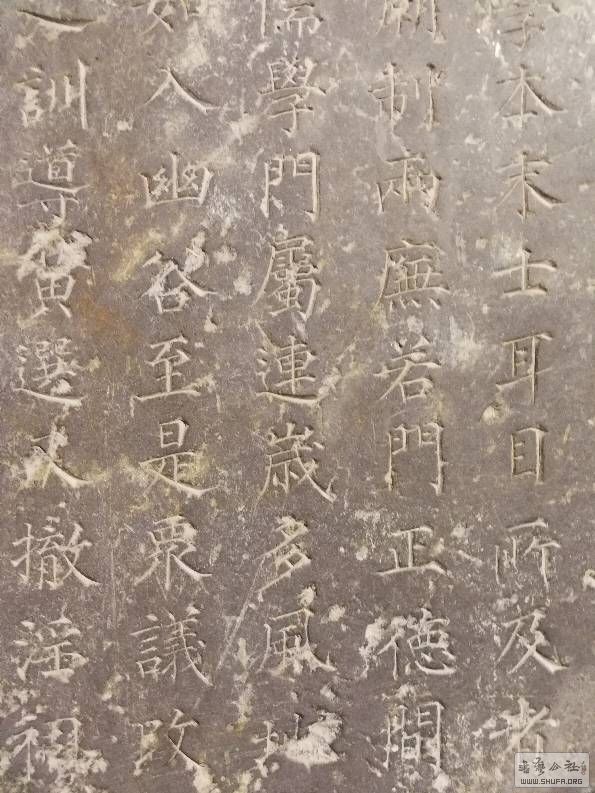 本末士耳目所及者
廟制兩廡若門正德間
儒學門屬連歲多風
如入幽谷至是衆議改
訓導黃選撤淫祠
書法公社
WWW.SHUFA.ORG